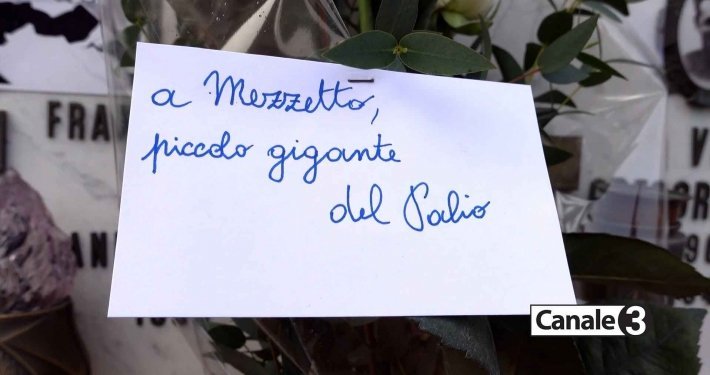 a Mezzetto,
piccolo gigante
del Palio
FRA
Canale 3